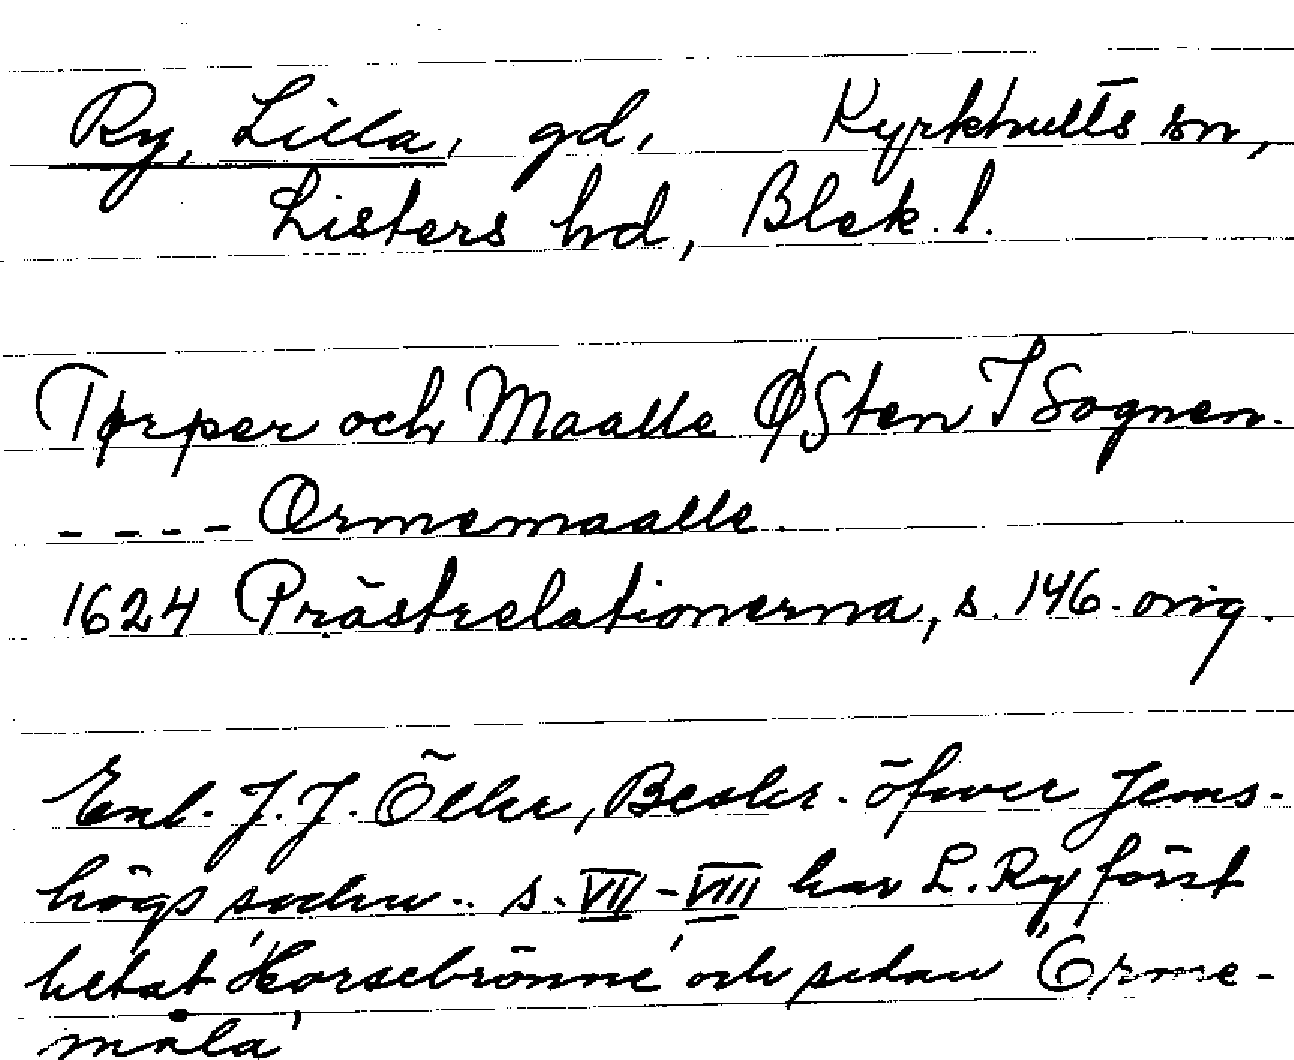 Ry, Lilla, gd, Kyrkhults sn,
Listers hd, Blek. l.
Tørper och Maalle ØSten I Sognen.
- - - - Ormemaalle.
1624 Prästrelationerna, s. 146. orig.
Enl. J. J. Öller, Beskr. öfwer Jems-
högs sochn.. s. VII-VIII har L. Ry först
hetat 'Horsebrönne' och sedan 'Orme-
måla'